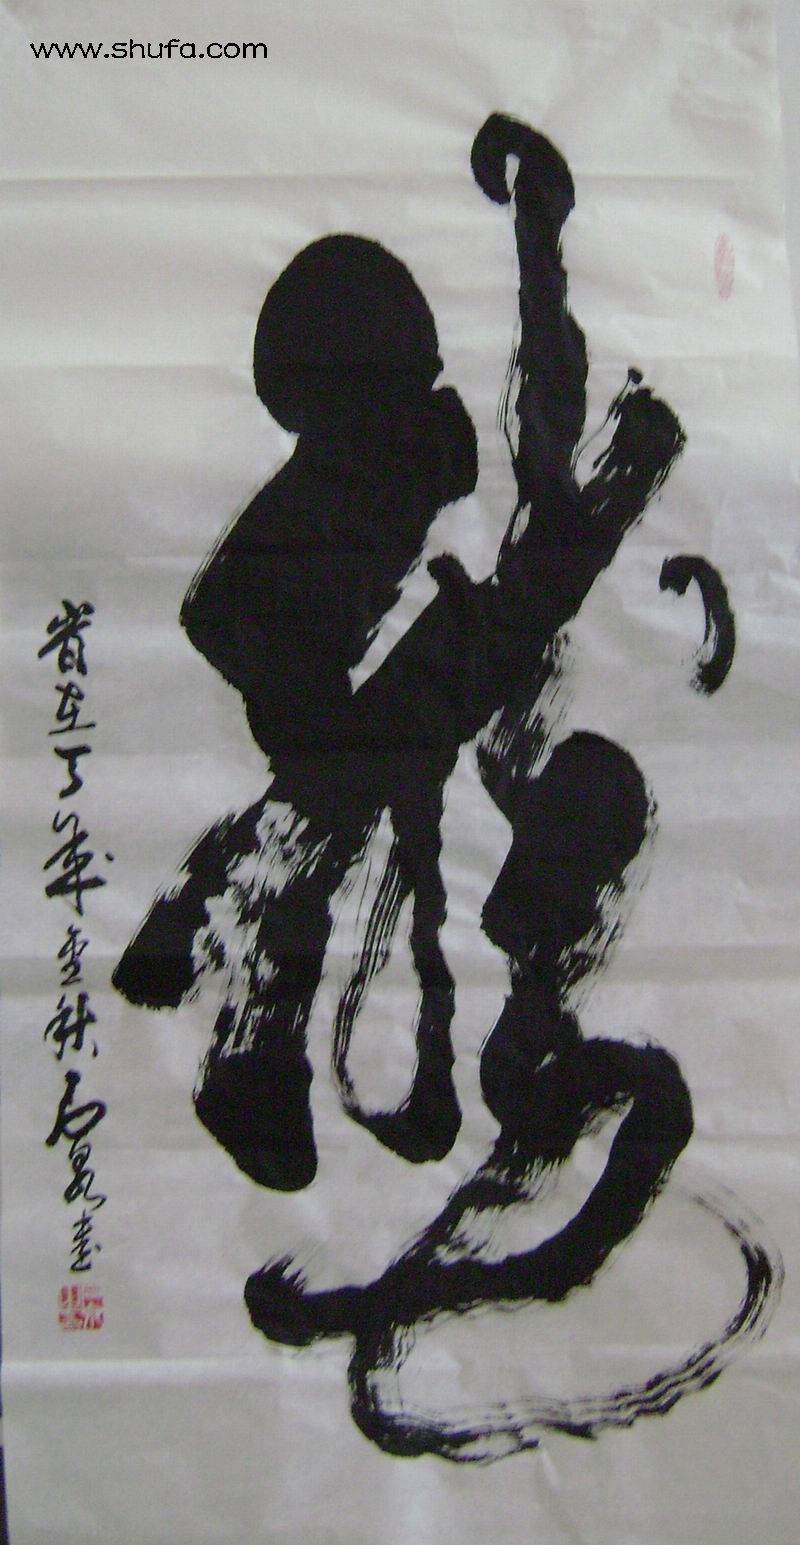 www.shufa.com
龍
歲在丁亥金秋石泉書